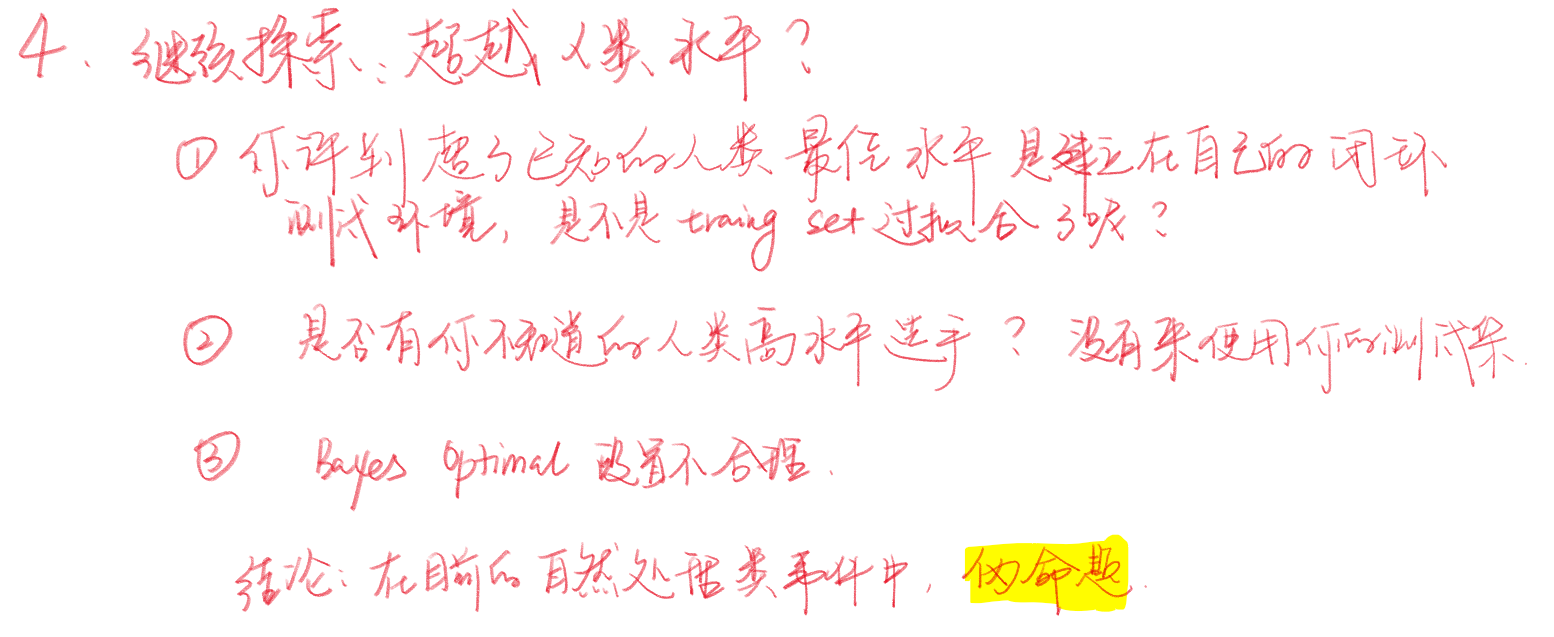 4. 继续探索: 超越人类水平?
① 你评判超了已知的人类最佳水平是建立在自己的闭环
测试环境, 是不是 traing set 过拟合了呢?
② 是否有你不知道的人类高水平选手? 没有来使用你的测试集.
③ Bayes Optimal 设置不合理.
结论: 在目前的自然处理类事件中, 伪命题.